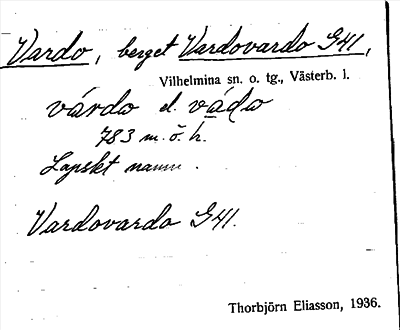 Vardo, berget Vardovardo G41,
Vilhelmina sn. o. tg., Västerb. l.
várdo el. váḍo
783 m. ö. h.
Lapskt namn.
Vardovardo G41.
Thorbjörn Eliasson, 1936.